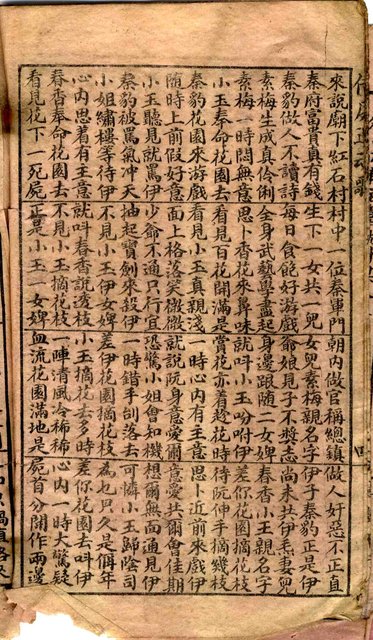 來說廟下紅石村村中一位秦軍門朝內做官稱總鎮做人好惡不正直
秦府富貴真有錢生下一女共一兒女兒素梅親名字伊子秦豹正是伊
秦豹做人不讀詩每日食飽好游戲爺娘見子不獎志尚未共伊妻兒
素梅生成真伶俐全身武藝學盡起身邊跟隨二女婢春香小玉親名字
素梅一時鬧無意思卜香花來鼻味就叫小玉吩咐伊差你花園摘花枝
小玉奉命花園去看見百花開滿是賞花亦着趁花時待阮伸手摘幾枝
秦豹花園來游戲看見小玉真親淺一時心內有主意思卜近前來戲伊
隨時上前假好意面上格落笑微微就說阮身意愛爾意愛共爾會佳期
小玉聽見就罵伊少爺不通只行宜恐驚小姐會知機想爾無面通見伊
秦豹被罵氣冲天抽起寶劍來殺伊一時錯手刣落去可憐小玉歸陰司
小姐繡樓等待伊不見小玉伊女婢差伊花園摘花枝為乜只久是個年
心內思着有主意就叫春香說透枝小玉摘花去多時差你花園去叫伊
春香奉命花園去不見小玉摘花枝一陣清風冷稀稀心內一時大驚疑
看見花下一死屍正是小玉一女婢血流花園滿地是屍首分開作兩邊